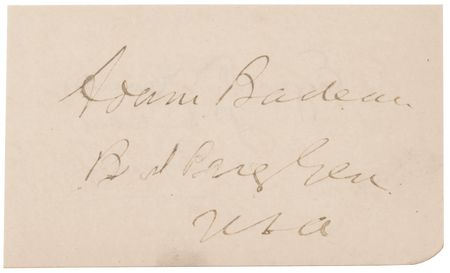 Adam Badeau
Bvt Brig Gen
USA